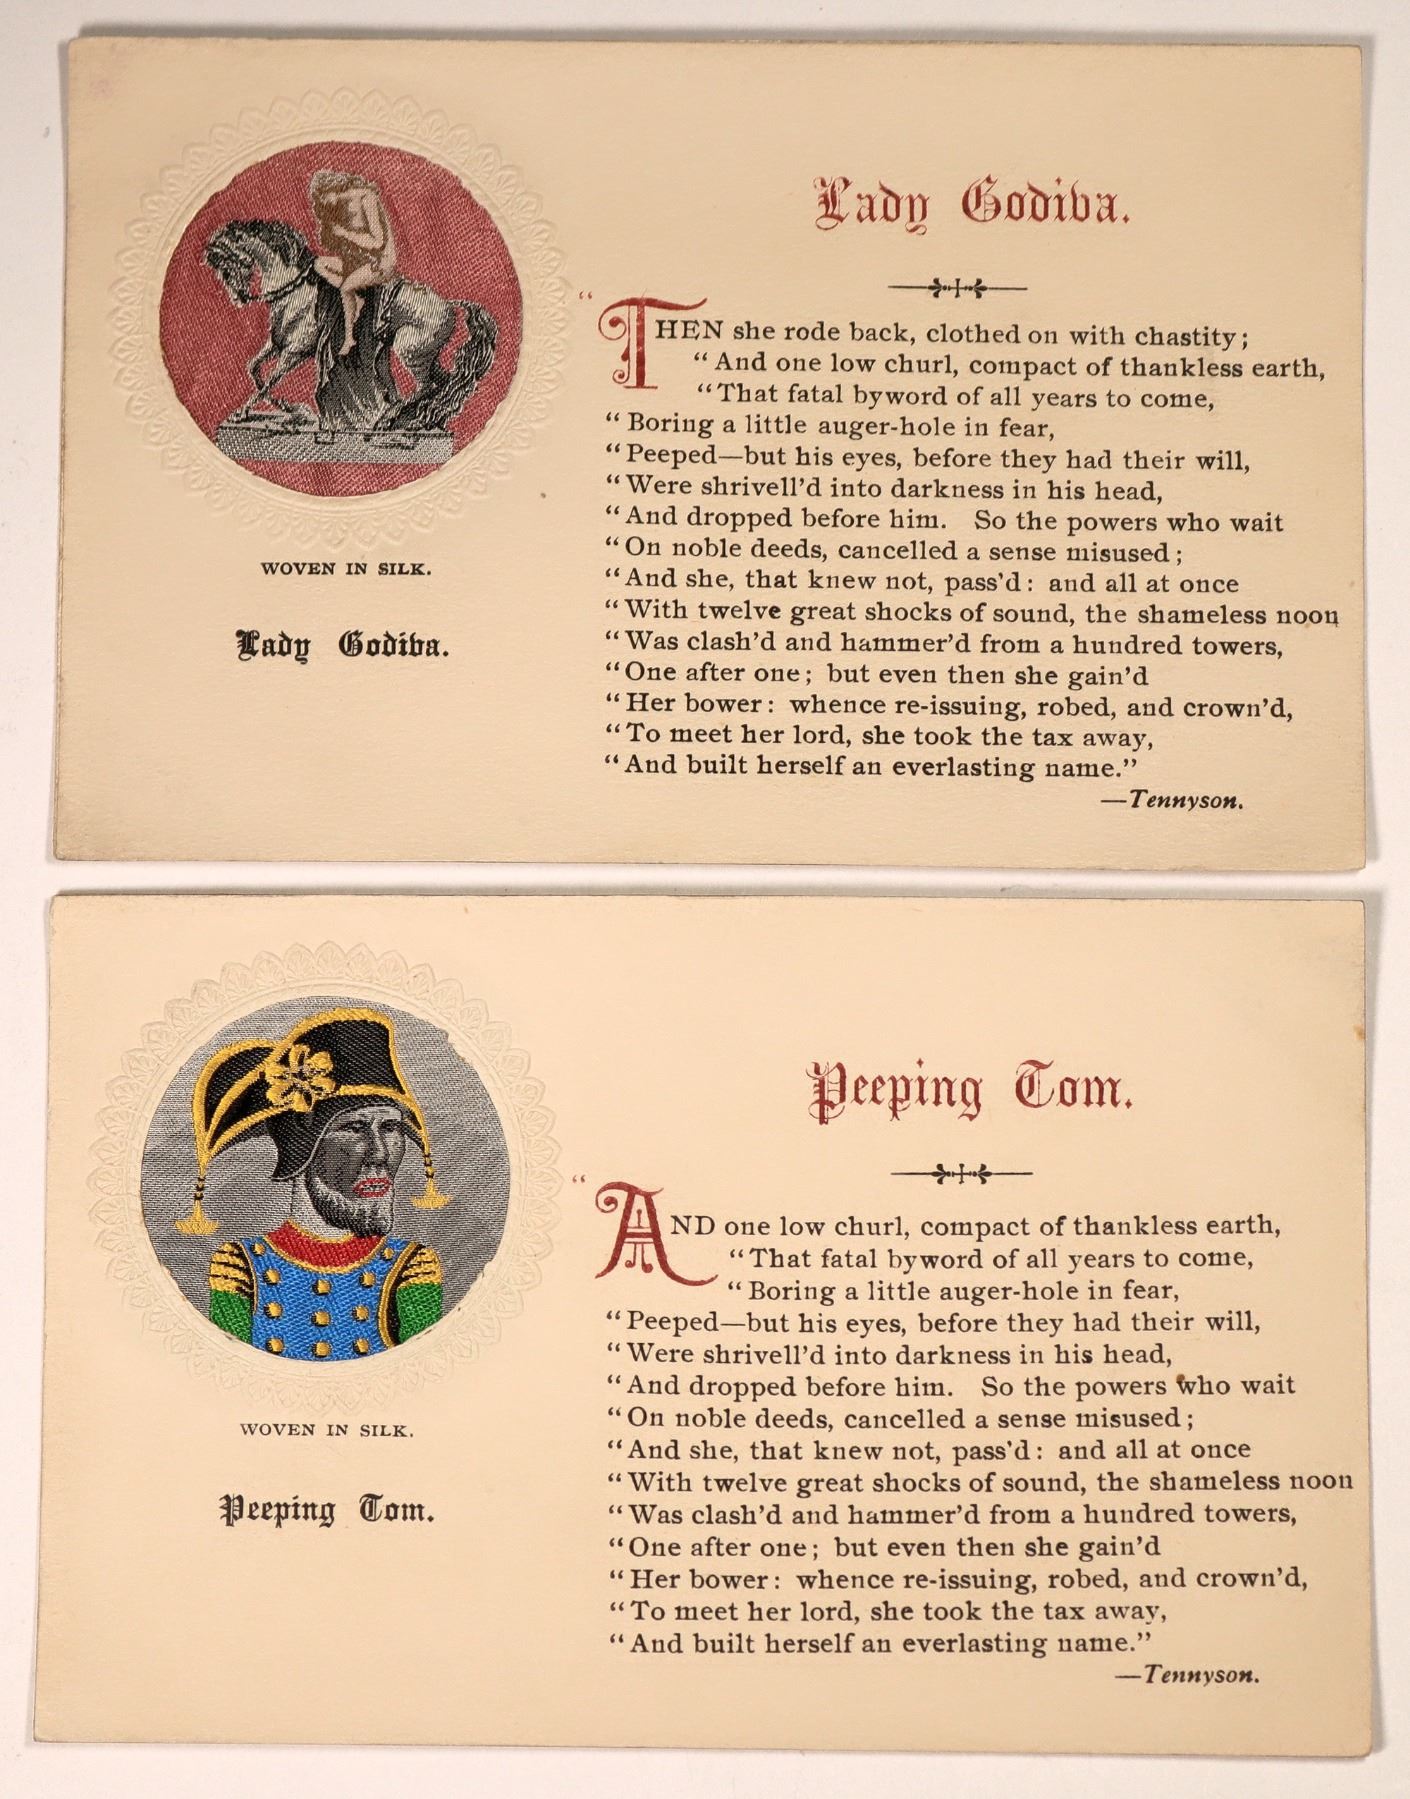 WOVEN IN SILK.
Lady Godiva.
Lady Godiva.
“THEN she rode back, clothed on with chastity;
“And one low churl, compact of thankless earth,
“That fatal byword of all years to come,
“Boring a little auger-hole in fear,
“Peeped—but his eyes, before they had their will,
“Were shrivell’d into darkness in his head,
“And dropped before him. So the powers who wait
“On noble deeds, cancelled a sense misused;
“And she, that knew not, pass’d: and all at once
“With twelve great shocks of sound, the shameless noon
“Was clash’d and hammer’d from a hundred towers,
“One after one; but even then she gain’d
“Her bower: whence re-issuing, robed, and crown’d,
“To meet her lord, she took the tax away,
“And built herself an everlasting name.”
—Tennyson.
WOVEN IN SILK.
Peeping Tom.
Peeping Tom.
“AND one low churl, compact of thankless earth,
“That fatal byword of all years to come,
“Boring a little auger-hole in fear,
“Peeped—but his eyes, before they had their will,
“Were shrivell’d into darkness in his head,
“And dropped before him. So the powers who wait
“On noble deeds, cancelled a sense misused;
“And she, that knew not, pass’d: and all at once
“With twelve great shocks of sound, the shameless noon
“Was clash’d and hammer’d from a hundred towers,
“One after one; but even then she gain’d
“Her bower: whence re-issuing, robed, and crown’d,
“To meet her lord, she took the tax away,
“And built herself an everlasting name.”
—Tennyson.